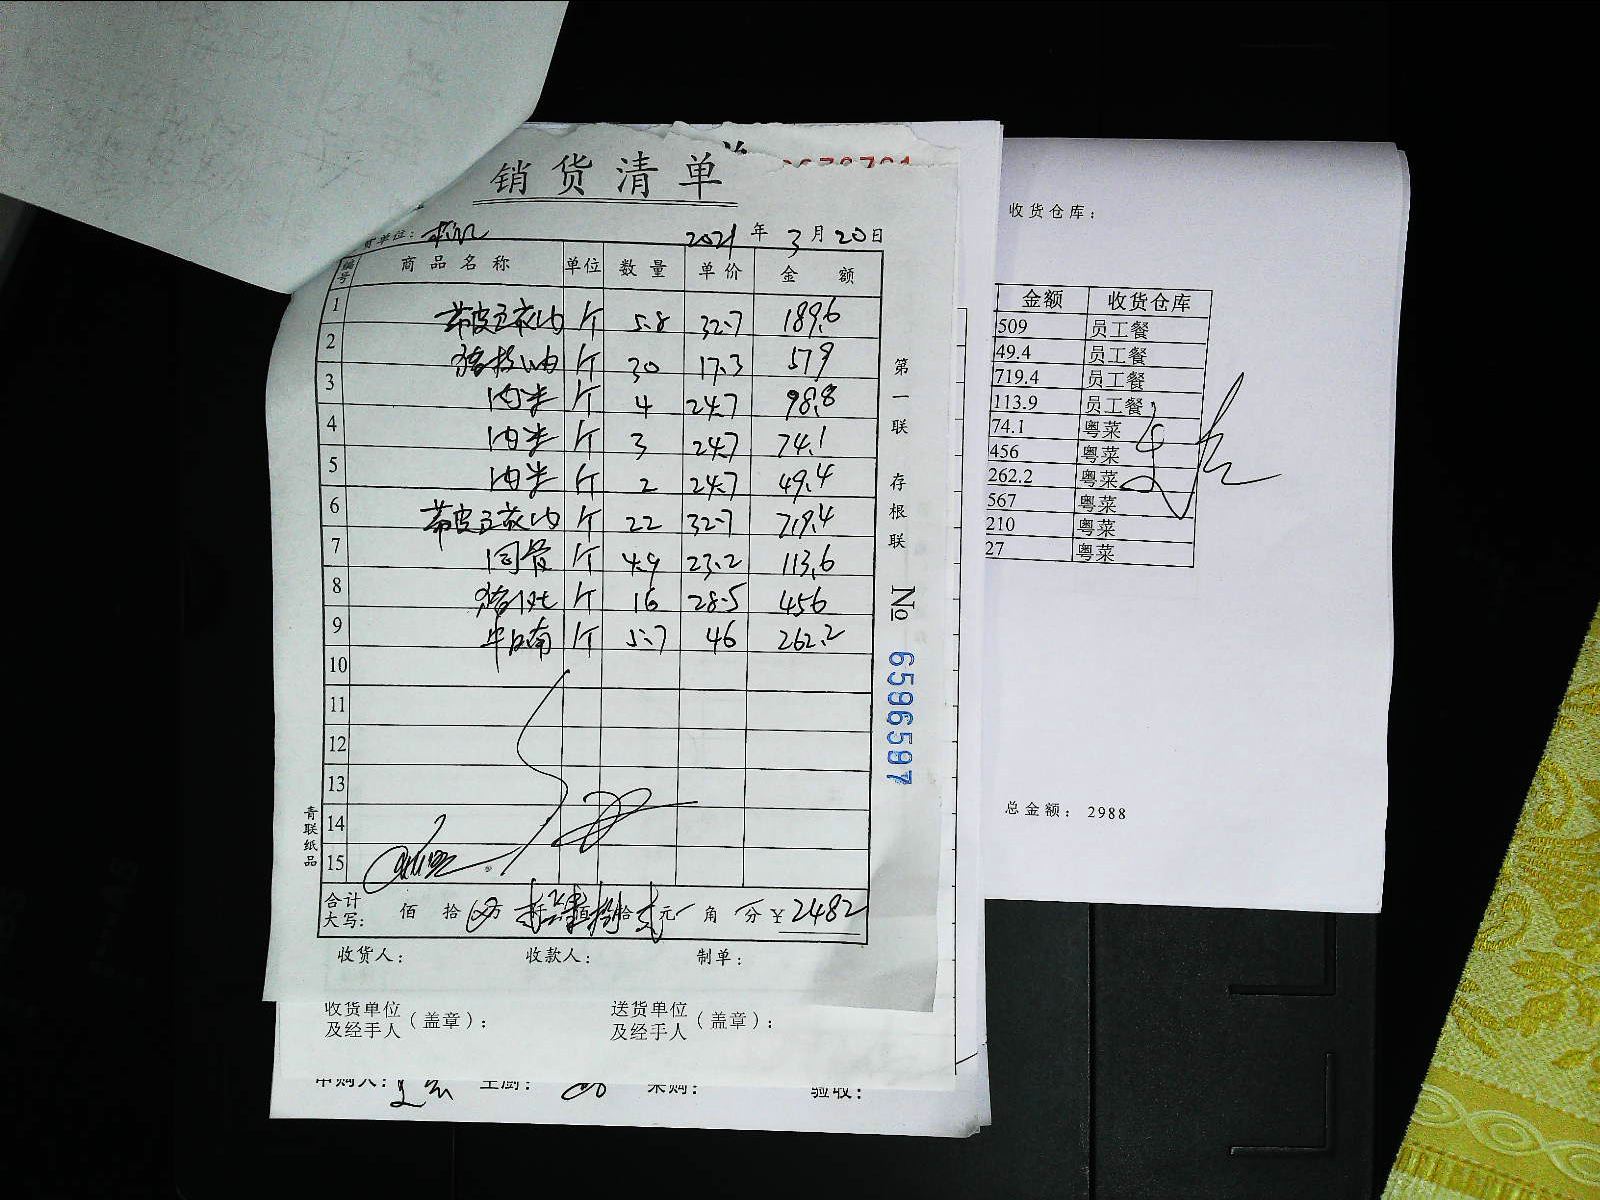 销货清单
单位：
2021年3月20日
编号 商品名称 单位 数量 单价 金额
1 带皮五花肉 斤 5.8 32.7 189.6
2 斤 30 17.3 579
3 肉米 斤 4 24.7 98.8
4 肉米 斤 3 24.7 74.1
5 肉米 斤 2 24.7 49.4
6 带皮五花肉 斤 22 32.7 719.4
7 同骨 斤 4.9 23.2 113.6
8 猪肚 斤 16 28.5 456
9 牛白南 斤 5.7 46 262.2
10
11
12
13
14
15
合计大写： 佰 拾 万 仟 佰 拾 元 角 分 ¥2482
收货人： 收款人： 制单：
第一联 存根联
№ 6596597
青联纸品
收货单位及经手人（盖章）： 送货单位及经手人（盖章）：
申购人： 主厨： 采购： 验收：
收货仓库：
金额 收货仓库
509 员工餐
49.4 员工餐
719.4 员工餐
113.9 员工餐
74.1 粤菜
456 粤菜
262.2 粤菜
567 粤菜
210 粤菜
27 粤菜
总金额：2988